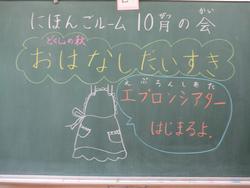 にほんごルーム 10月の会
がつ かい
どくしょの秋
おはなしだいすき
えぷろんしあたー
エプロンシアター
はじまるよ.